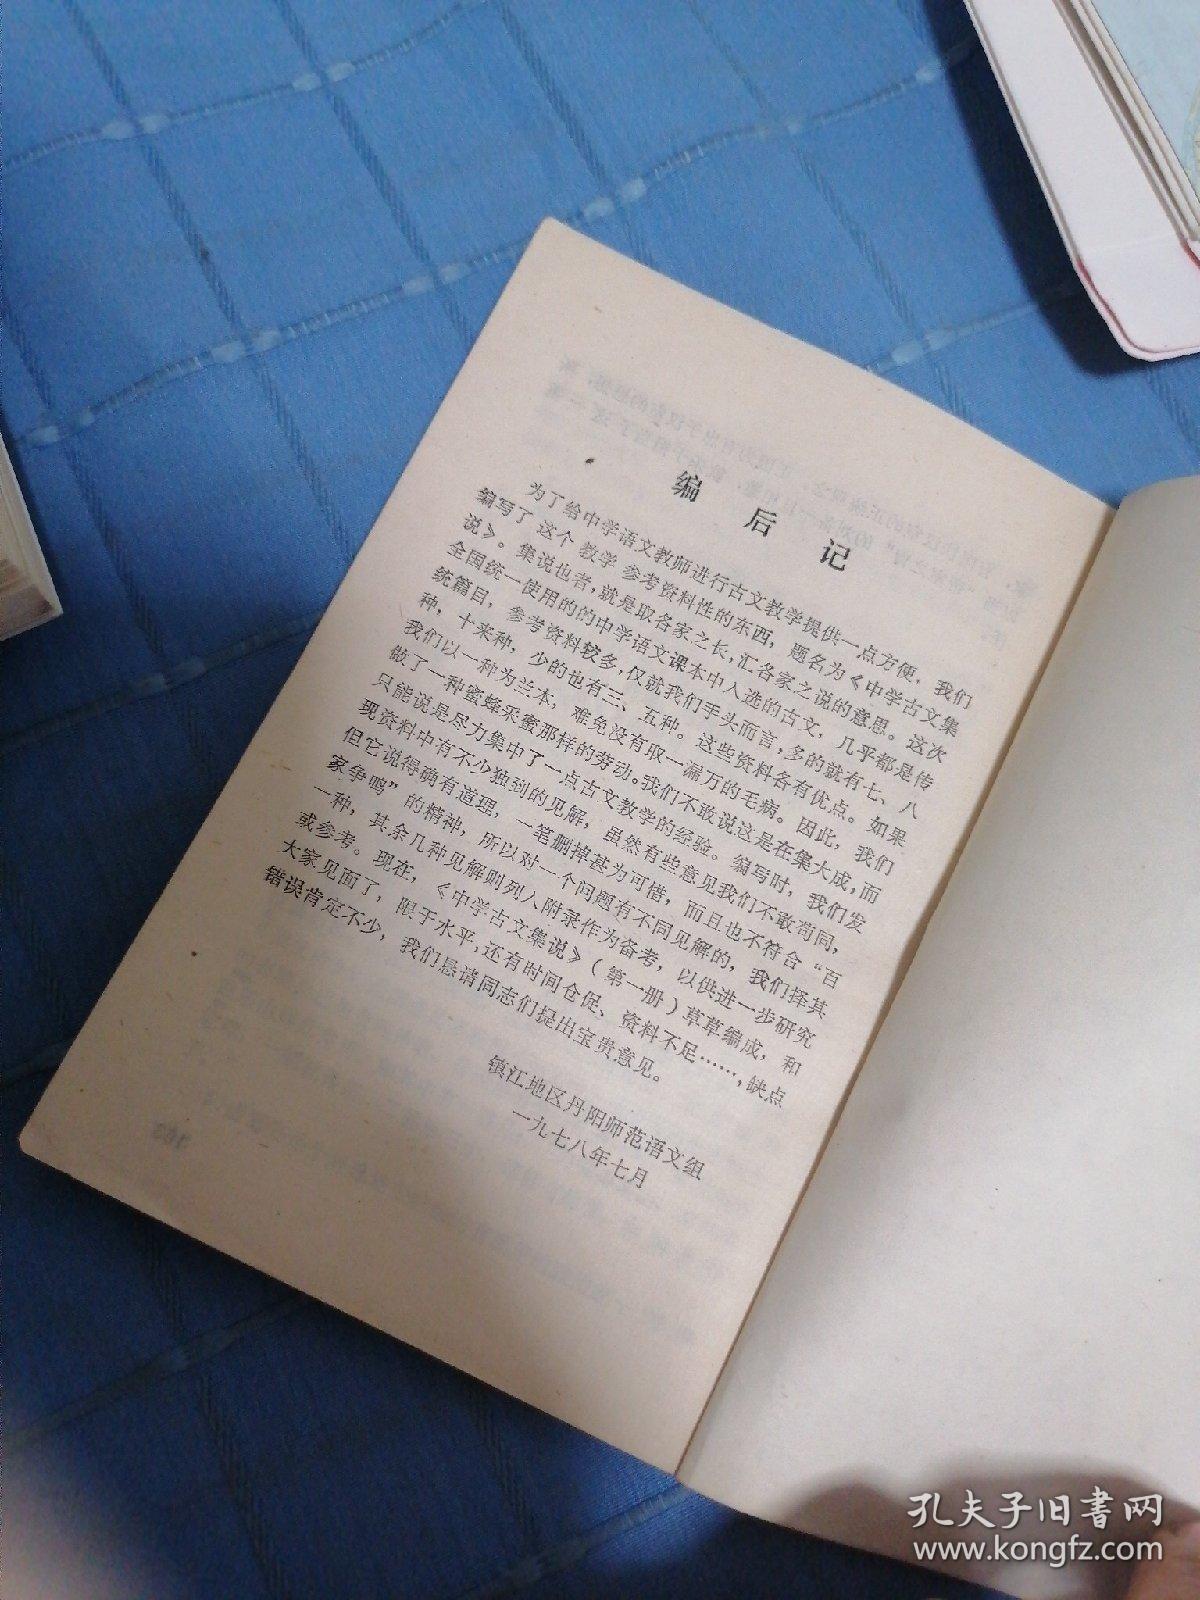 编后记
为了给中学语文教师进行古文教学提供一点方便，我们
编写了这个教学参考资料性的东西，题名为《中学古文集
说》。集说也者，就是取名家之长，汇各家之说的意思。这次
全国统一使用的的中学语文课本中入选的古文，几乎都是传
统篇目，参考资料较多，仅就我们手头而言，多的就有七、八
种，十来种，少的也有三、五种。这些资料各有优点。如果
我们以一种为兰本，难免没有取一漏万的毛病。因此，我们
做了一种蜜蜂采蜜那样的劳动。我们不敢说这是在集大成，而
只能说是尽力集中了一点古文教学的经验。编写时，我们发
现资料中有不少独到的见解，虽然有些意见我们不敢苟同，
但它说得确有道理，一笔删掉甚为可惜，而且也不符合“百
家争鸣”的精神，所以对一个问题有不同见解的，我们择其
一种，其余几种见解则列入附录作为备考，以供进一步研究
或参考。现在，《中学古文集说》（第一册）草草编成，和
大家见面了，限于水平，还有时间仓促、资料不足……，缺点
错误肯定不少，我们恳请同志们提出宝贵意见。
镇江地区丹阳师范语文组
一九七八年七月
孔夫子旧书网
www.kongfz.com